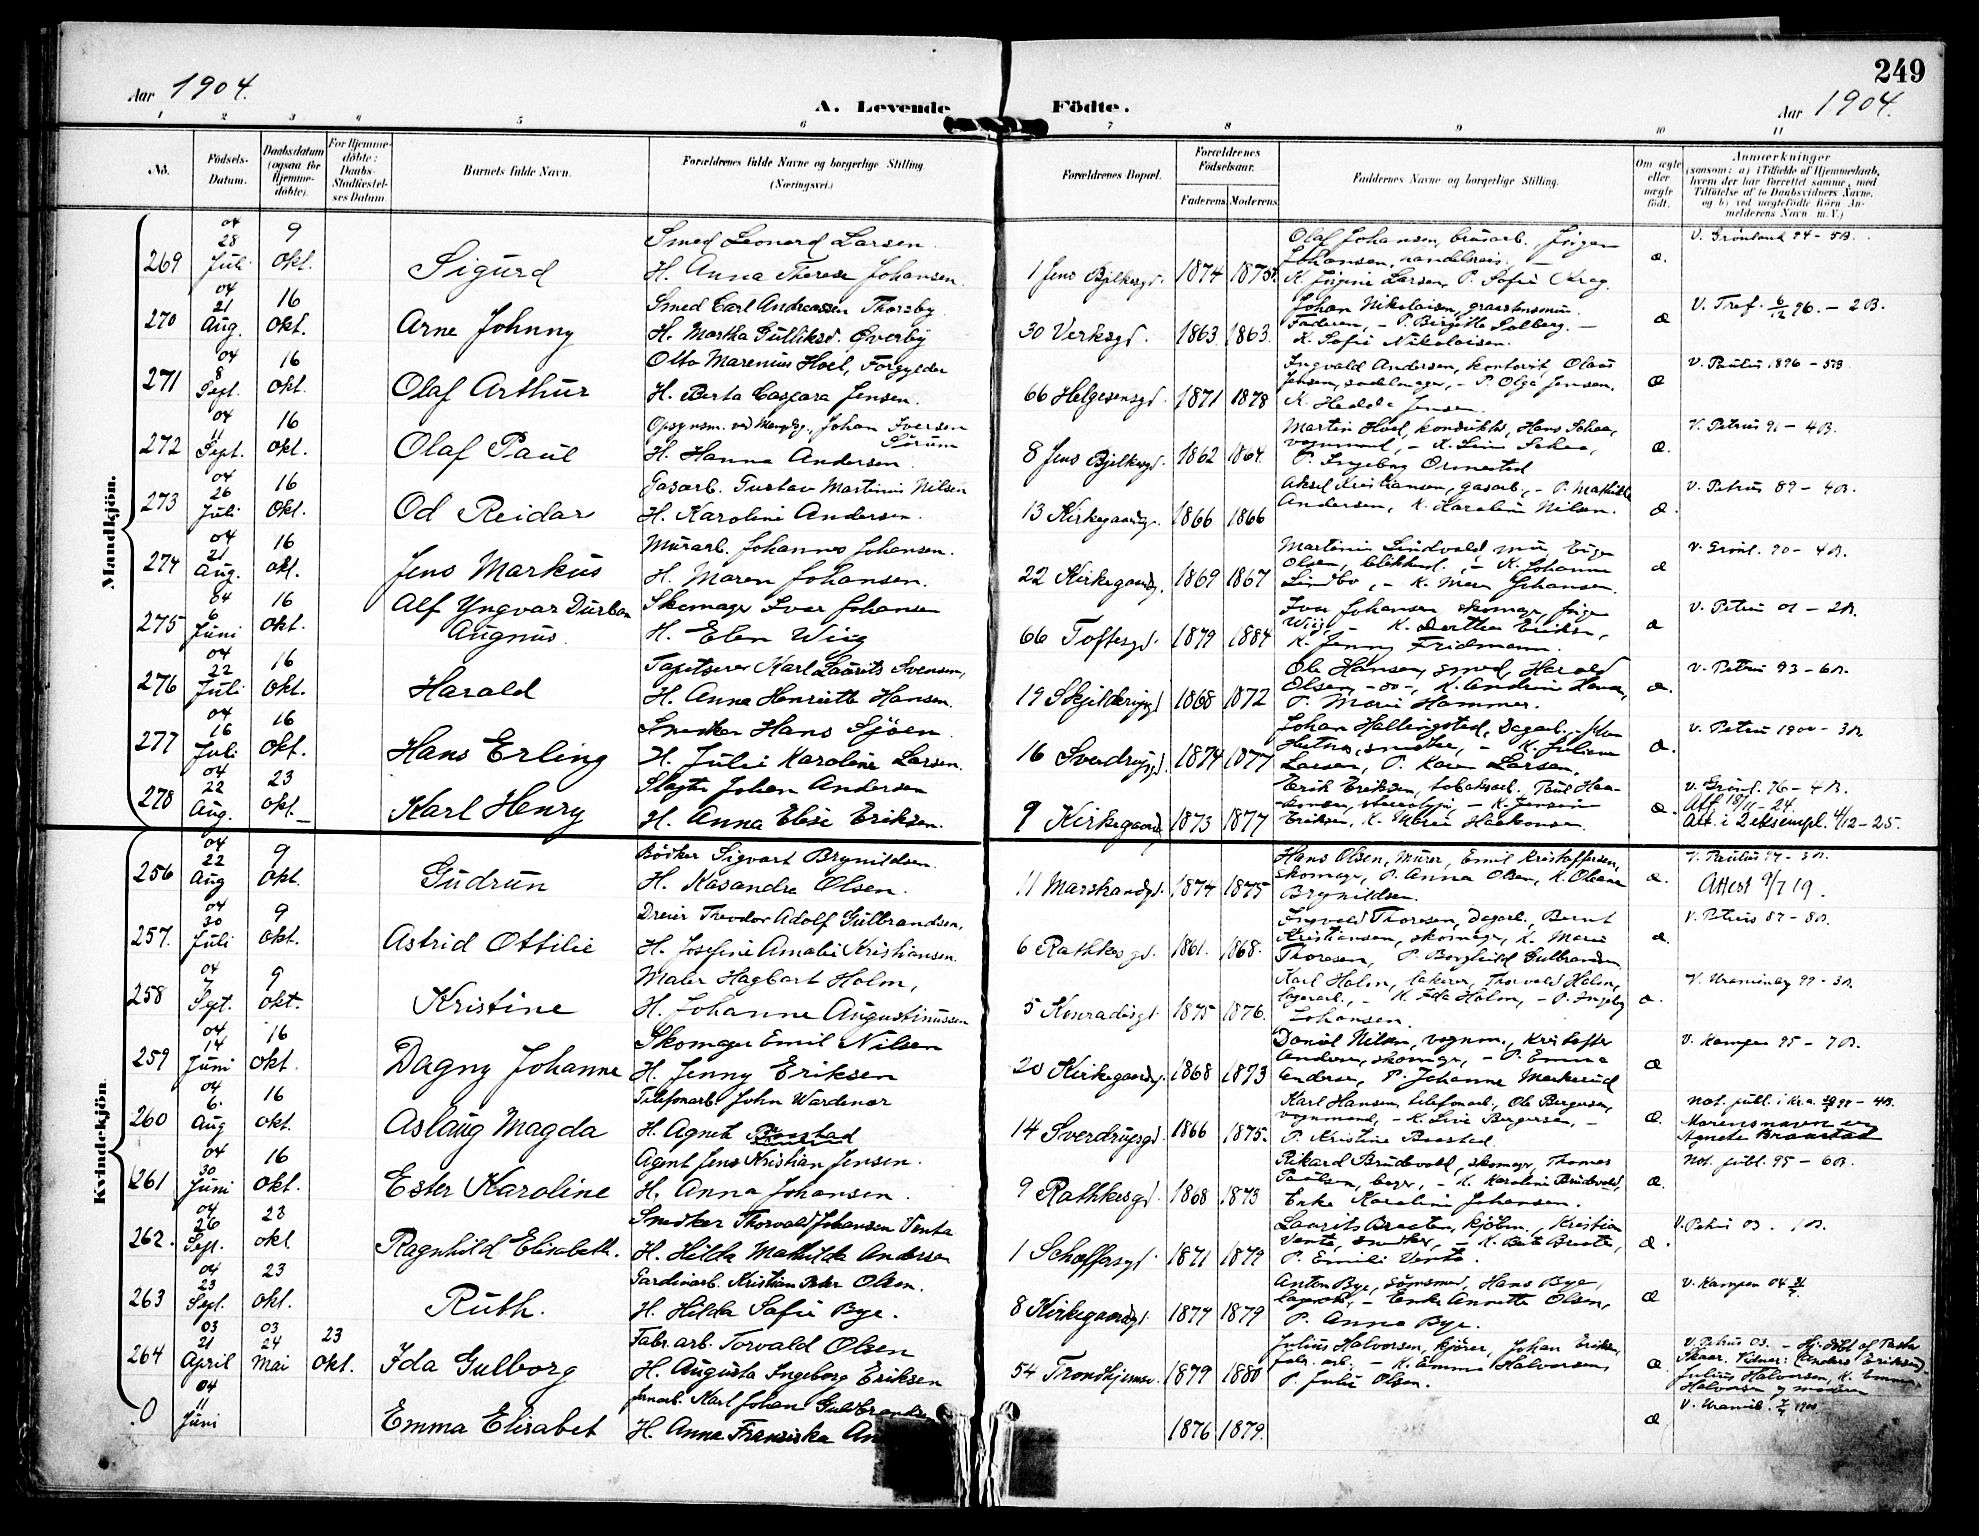 249
Aar 1904.
A. Levende Födte.
Aar 1904.
1 2 3 4 5 6 7 8 9 10 11
No.
Födsels-Datum.
Daabsdatum (ogsaa for Hjemmedöbte).
For Hjemmedöbte: Daabs-Stadfæstelses Datum.
Barnets fulde Navn.
Forældrenes fulde Navne og borgerlige Stilling (Næringsvei.)
Forældrenes Bopæl.
Forældrenes Födselsaar.
Faderens Moderens
Faddernes Navne og borgerlige Stilling.
Om ægte eller uægte födt.
Anmærkninger
(saasom: a) i Tilfælde af Hjemmedaab, hvem der har forrettet samme, med Tilföielse af to Daabsvidners Navne, og b) ved uægtefödte Börn Anmelderens Navn m. V.)
Mandkjön.
269 04 28 Juli 9 Okt. Sigurd
Smed Leonard Larsen
H. Anna Therese Johansen.
1 Jens Bjelkesgd. 1874 1875
Olaf Johansen, Jörgen Johansen, K. Jörgine Larsen, P. Sofie Krag.
æ. V. Grönland 94 - 5B.
270 04 21 Aug. 16 Okt. Arne Johnny
Smed Carl Andreassen Thorsby
H. Martha Gulliksd. Överby
30 Verksgd. 1863 1863.
Johan Nikolaisen, Faderen, - P. Birgitte Solberg. - K. Sofie Nikolaisen.
æ V. Tref. 6/12 96. - 2B.
271 04 8 Sept. 16 Okt. Olaf Arthur
Otto Marenius Hoel, Forgylder
H. Berta Caspara Jensen.
66 Helgesensgd. 1871 1878
Ingvald Andersen, kontorist, Olaus Jensen, sadelmager, - P. Olga Jensen. K. Hedda Jensen.
æ V. Paulus 1896 - 5B
272 04 11 Sept. 16 Okt. Olaf Paul
Johan Iversen Sörum
H. Hanna Andersen
8 Jens Bjelkesgd. 1862 1864.
Martin Hoel, konduktör, Hans Schaa, vognmand, - P. Ingeborg Ormestad
æ. V. Petrus 91 - 4B.
273 04 26 Juli 16 Okt. Od Reidar
Gasarb. Gustav Martinius Nilsen
H. Karoline Andersen.
13 Kirkegaardsg. 1866 1866
Aksel Kristiansen, gasarb., - P. Mathilde Andersen, K. Karoline Nilsen.
æ. V. Petrus 89 - 4B.
274 04 21 Aug. 16 Okt. Jens Markus
Murarb. Johannes Johansen.
H. Maren Johansen.
22 Kirkegaardsg. 1869 1867
Martinius Lindvold, Olsen, blikkensl., - K. Johanne Lindbo, - K. Johansen.
æ V. Grönl. 90 - 4B.
275 04 6 Juni 16 Okt. Alf Yngvar Durban Augnus.
Skomager Ivar Johansen
H. Elen Wiig
66 Toftesgd. 1879 1884
Ivar Johansen skomager, Jörgen Wiig, - K. Dorthea Eriksen, K. Jenny Fridmann.
æ V. Petrus 02 - 2B.
276 04 22 Juli 16 Okt. Harald
Tapetserer Karl Laurits Svensen,
H. Anna Henriette Hansen.
19 1868 1872
Ole Hansen, smed, Harald Olsen, -do-, K. Andrine Hansen, P. Marie Hammer.
æ. V. Petrus 93 - 6B.
277 04 16 Juli 16 Okt. Hans Erling
Snedker Hans Sjöen.
H. Julie Karoline Larsen.
16 Sverdrupsgd. 1874 1877
Johan Hallingstad, Dagarb. snedker, - K. Juliane Larsen, P. Karen Larsen.
æ. V. Petrus 1900 - 3B
278 04 22 Aug. 23 Okt. Karl Henry
Slagter Johan Andersen
H. Anna Elise Eriksen.
9 Kirkegaardsg. 1873 1877
Erik Eriksen, tobaksarb., Paul Haakonsen, stereotypör - K. Eriksen, K. Marie Haakonsen.
æ. V. Grönl. 96 - 4B.
Att. 18/11 - 24.
Att. i 2 eksempl. 4/12 - 25.
Kvindekjön.
256 04 22 Aug 9 Okt. Gudrun
Bödker Sigvart Brynildsen.
H. Kasandra Olsen.
11 Markvandsgd. 1874 1875
Hans Olsen, Murer, Emil Kristoffersen, skomager, P. Anna Olsen, K. Oleane Brynildsen.
æ. V. Paulus 97 - 3B.
Attest 9/7 19.
257. 04 30 Juli 9 Okt. Astrid Ottilie
Dreier Theodor Adolf Gulbrandsen,
H. Josefine Amalie Kristiansen.
6 Rathkes gd. 1861. 1868.
Ingvald Thoresen, Dagarb., Bernt Kristiansen, skomager, K. Marie Thoresen, P. Borghild Gulbrandsen
æ. V. Petrus 87 - 8B.
258 04 7 Sept. 9 Okt. Kristine
Maler Hagbart Holm,
H. Johanne Augustinussen
5 Konradisgt. 1875 1876.
Karl Holm, lakerer, Thorvald Holm, lagerarb., - K. Ida Holm, - P. Ingeborg Johansen.
æ. V. Uranienbg 99 - 3B.
259 04 14 Juni 16 Okt. Dagny Johanne
Skomager Emil Nilsen
H. Jenny Eriksen
20 Kirkegaardsg. 1868 1873
Daniel Nilsen, vognm., Kristoffer Andersen, skomager, - P. Emma Andersen, P. Johanne Markerud
æ V. Kampen 95 - 7B.
260 04 6. Aug 16 Okt. Aslaug Magda
Telefonarb. John Wardenær
H. Agnete Baastad
14 Sverdrupsgd. 1866 1875.
Karl Hansen, telefonarb., Ole Bergersen, vognmand, - K. Live Bergersen, - P. Kristine Baastad.
æ. Not. publ. i Kr.a. 98 - 4B.
Morens navn er Agnete Braastad
261 04 30 Juni 16 Okt. Ester Karoline
Agent Jens Kristian Jensen.
H. Anna Johansen.
9 Rathkesgd. 1868 1873
Rikard Brudevold, skomager, Thomas Paulsen, bager, - K. Karoline Brudevold, Enke Karoline Johansen.
æ. Not. publ. 95 - 6B.
262. 04 26 Sept. 23 Okt. Ragnhild Elisabeth.
Snedker Thorvald Johansen Venta
H. Hilda Mathilde Andersen
1 Schaffersgd. 1871 1879
Laurits Braaten, kjöbm., Kristian Venta, snedker, - K. Braaten, P. Emilie Venta.
æ. V. Petrus 03. 1B.
263 04 23 Sept. 23 Okt. Ruth.
Gardinarb. Kristian Peder Olsen.
H. Hilda Sofie Bye.
8 Kirkegaardsgt. 1877 1879
Anton Bye, Hans Bye, - Enke Annette Olsen, P. Anna Bye.
æ V. Kampen 04
264 03 21 April 03 24 Mai 23 Okt. Ida Gulborg
Fabr. arb. Torvald Olsen
H. Augusta Ingeborg Eriksen
54 Trondhjemsv. 1879 1880
Julius Halvorsen, kjörer, Johan Eriksen, fabr. arb. - K. Emma Halvorsen, P. Julie Olsen.
æ V. Petrus 03. - Hj. döbt af Pastor Skaar. Vidner: Anders Eriksen, Julius Halvorsen, K. Emma Halvorsen og moderen
0 04 11 Juni Emma Elisabet
Jernarb. Karl Johan Guldbrandsen
H. Anna Franciska An
1876 1879.
æ V. Uranieb. 1900